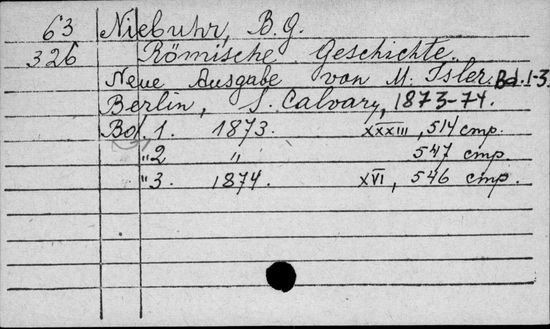 63 Niebuhr, B.G.
326 Römische Geschichte.
Neue Ausgabe von M. Isler. Bd. 1-3.
Berlin, S. Calvary, 1873-74.
Bd. 1. 1873. XXXIII, 514 стр.
"2 " 547 стр.
"3. 1874. XVI, 546 стр.